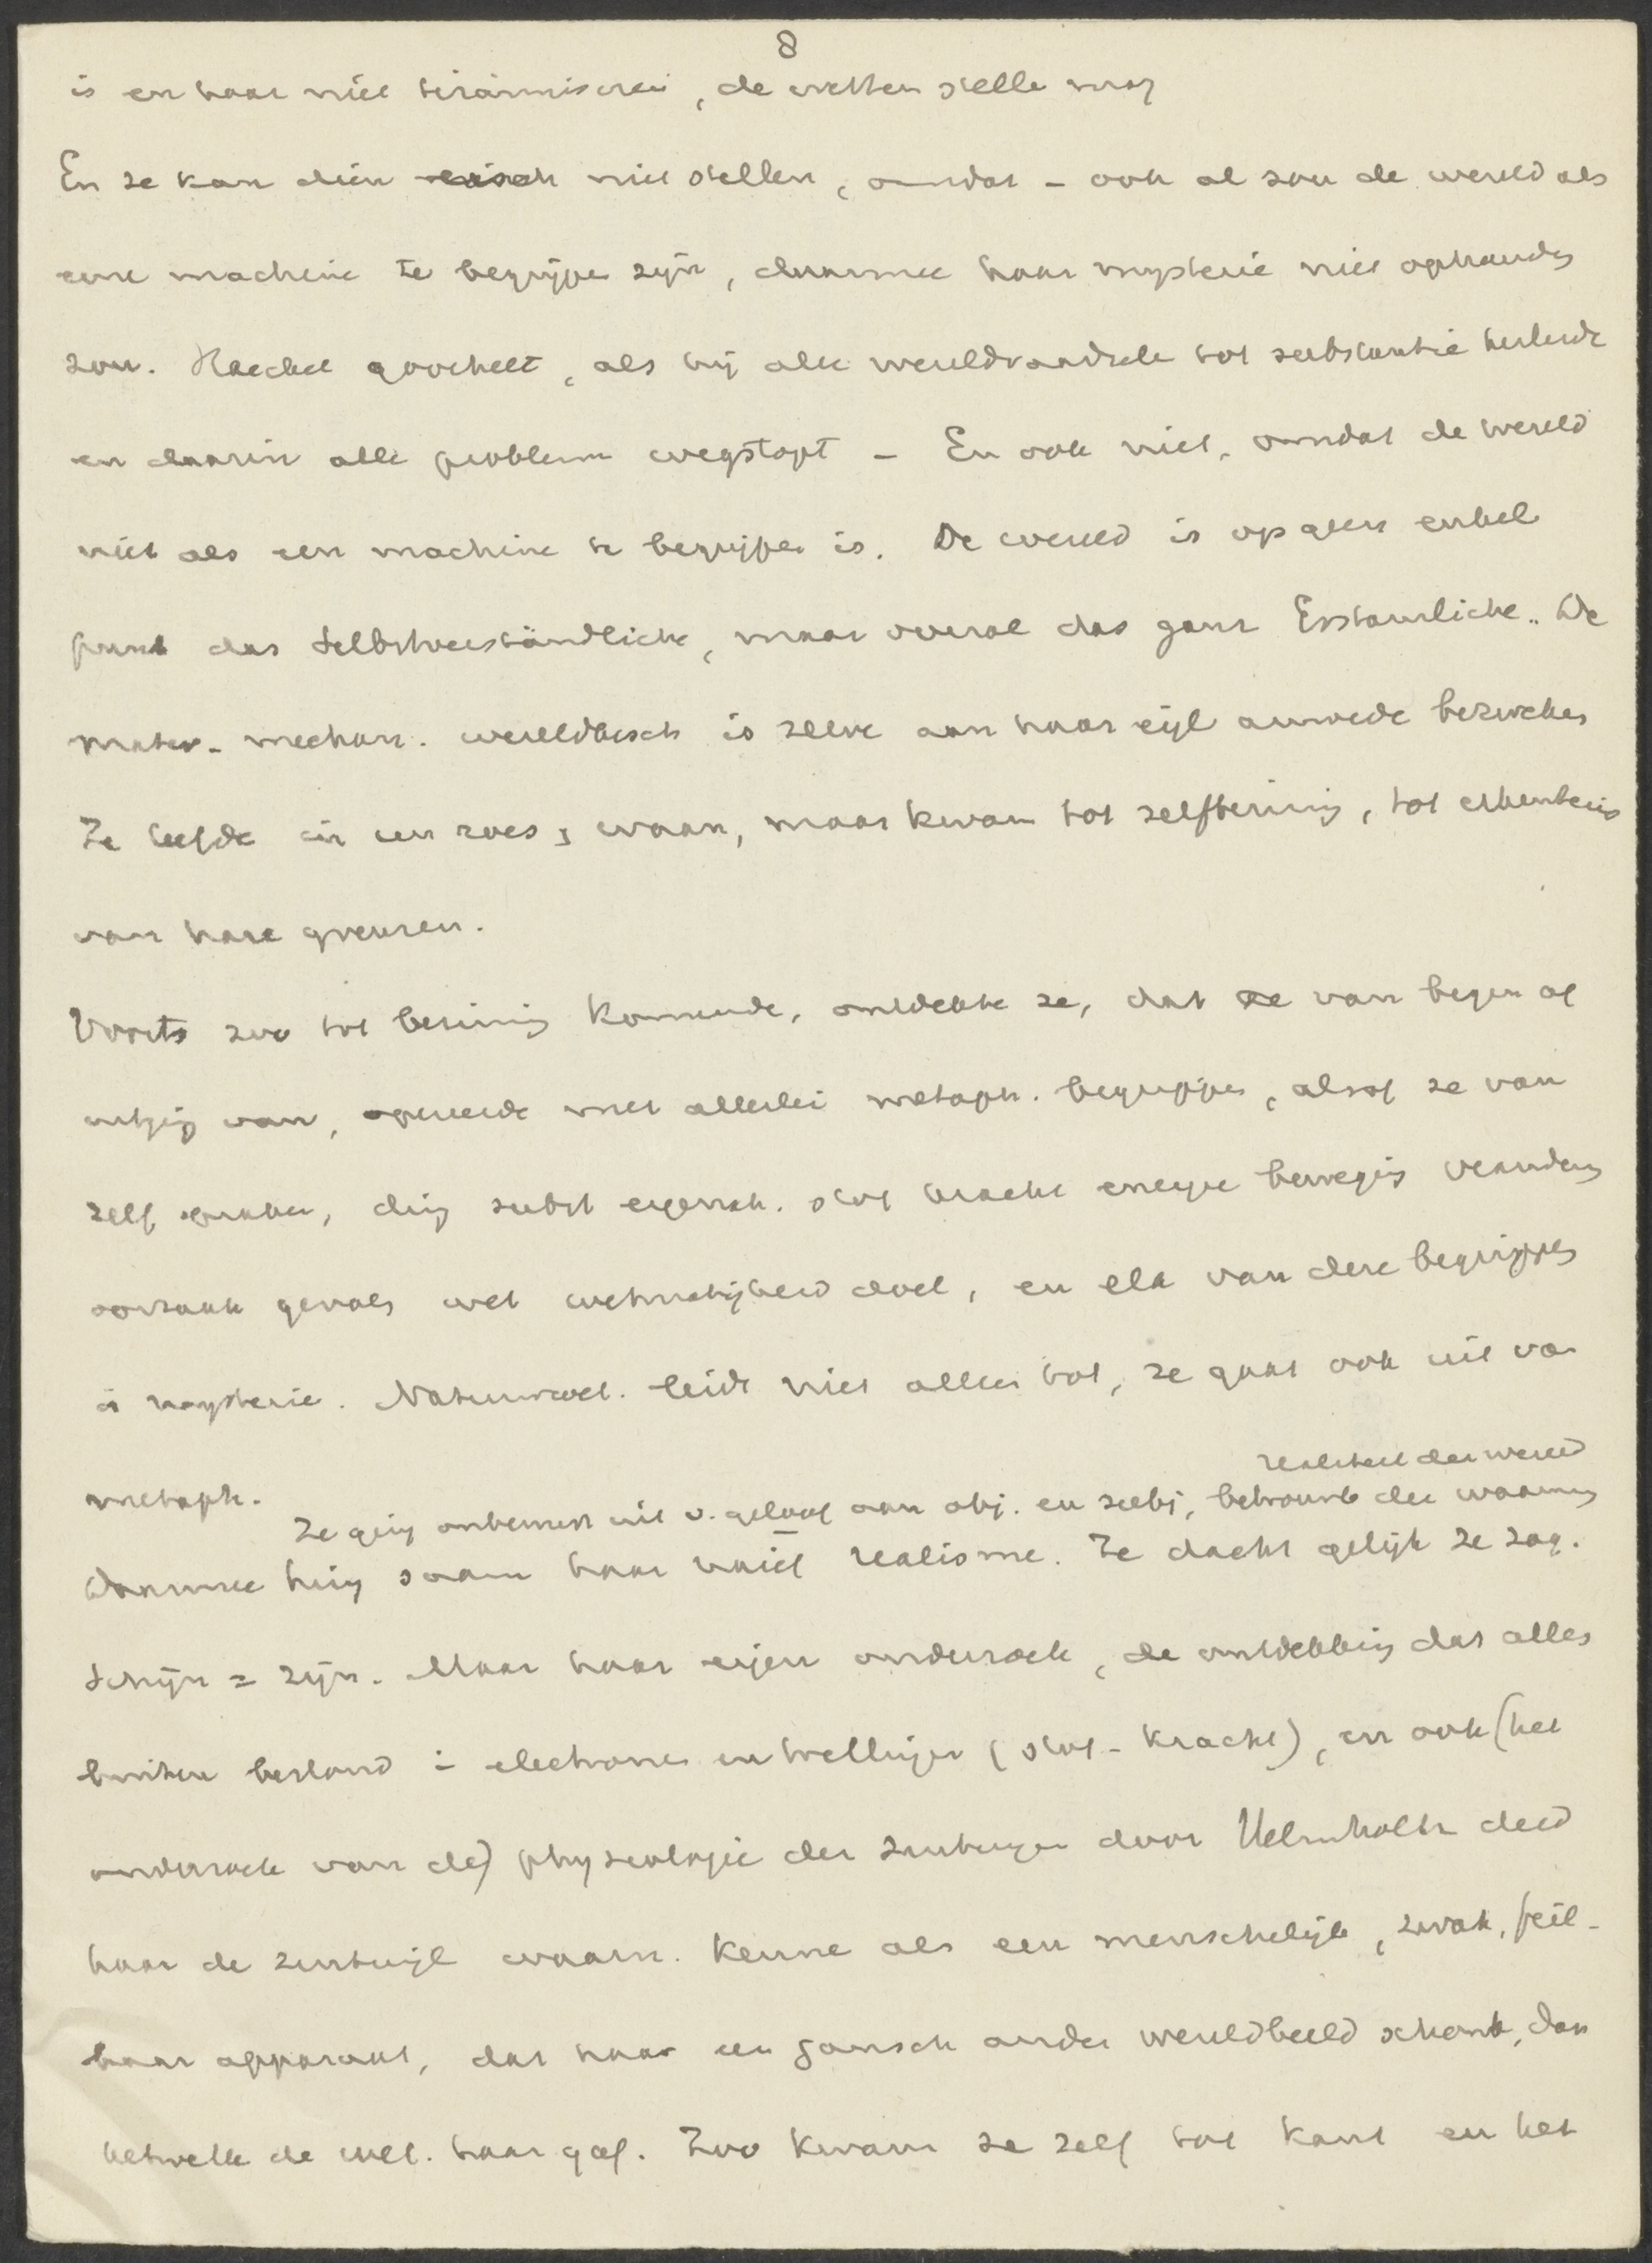 8
is en haar niet tirannisere, de wetten stelle mag
En ze kan dien eisch niet stellen, omdat - ook al zou de wereld als
eene machine te begrijpe zijn, daarmee haar mysterie niet ophoude
zou. Haeckel goochelt, als hij alle wereldraadsele tot substantie herleidt
en daarin alle probleme wegstopt - En ook niet, omdat de wereld
niet als een machine te begrijpe is. De wereld is op geen enkel
punt das Selbstverständliche, maar overal das ganz Erstaunliche. De
mater. mechan. wereldbesch is zelve aan haar eigen armoede bezweken
Ze leefde in een roes, waan, maar kwam tot zelfbezinning, tot erkentenis
van hare grenzen.
Voorts zoo tot bezinning komende, ontdekte ze, dat ze van begin af
uitging van, opereerde met allerlei metaph. begrippe, alsof ze van
zelf spraken, ding subst eigensch. stof kracht energie beweging verandering
oorzaak gevolg wet wetmatigheid doel, en elk van deze begrippen
is mysterie. Natuurwet. leidt niet alleen tot, ze gaat ook uit van
metaph.
realiteit der wereld
Ze ging onbewust uit v. geloof aan obj. en subj, betrouwb der waarneming
Daarmee hing saam haar naief realisme. Ze dacht gelijk ze zag.
Schijn = zijn. Maar haar eigen onderzoek, de ontdekking dat alles
buiten bestond in electronen en trillingen (stof - kracht), en ook (het
onderzoek van de) physiologie der zintuigen door Helmholtz deed
haar de zintuigl waarn. kenne als een menschelijk, zwak, feil-
baar apparaat, dat haar een gansch ander wereldbeeld schonk, dan
hetwelk de wet. haar gaf. Zoo kwam ze zelf tot Kant en het